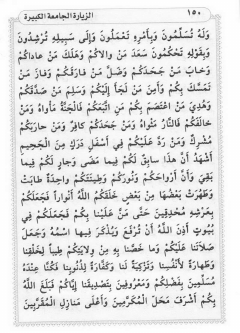 ١٥٠
الزيارة الجامعة الكبيرة
وَلَهُ تُسَلِّمُونَ وَبِأَمْرِهِ تَعْمَلُونَ وَإِلَى سَبِيلِهِ تُرْشِدُونَ
وَبِقَوْلِهِ تَحْكُمُونَ سَعَدَ مَنْ وَالاكُمْ وَهَلَكَ مَنْ عَادَاكُمْ
وَخَابَ مَنْ جَحَدَكُمْ وَضَلَّ مَنْ فَارَقَكُمْ وَفَازَ مَنْ
تَمَسَّكَ بِكُمْ وَأَمِنَ مَنْ لَجَأَ إِلَيْكُمْ وَسَلِمَ مَنْ صَدَّقَكُمْ
وَهُدِيَ مَنْ اعْتَصَمَ بِكُمْ مَنِ اتَّبَعَكُمْ فَالْجَنَّةُ مَأْوَاهُ وَمَنْ
خَالَفَكُمْ فَالنَّارُ مَثْوَاهُ وَمَنْ جَحَدَكُمْ كَافِرٌ وَمَنْ حَارَبَكُمْ
مُشْرِكٌ وَمَنْ رَدَّ عَلَيْكُمْ فِي أَسْفَلِ دَرَكٍ مِنَ الْجَحِيمِ
أَشْهَدُ أَنَّ هَذَا سَابِقٌ لَكُمْ فِيمَا مَضَى وَجَارٍ لَكُمْ فِيمَا
بَقِيَ وَأَنَّ أَرْوَاحَكُمْ وَنُورَكُمْ وَطِينَتَكُمْ وَاحِدَةٌ طَابَتْ
وَطَهُرَتْ بَعْضُهَا مِنْ بَعْضٍ خَلَقَكُمُ اللَّهُ أَنْوَاراً فَجَعَلَكُمْ
بِعَرْشِهِ مُحْدِقِينَ حَتَّى مَنَّ عَلَيْنَا بِكُمْ فَجَعَلَكُمْ فِي
بُيُوتٍ أَذِنَ اللَّهُ أَنْ تُرْفَعَ وَيُذْكَرَ فِيهَا اسْمُهُ وَجَعَلَ
صَلاتَنَا عَلَيْكُمْ وَمَا خَصَّنَا بِهِ مِنْ وِلايَتِكُمْ طِيباً لِخَلْقِنَا
وَطَهَارَةً لِأَنْفُسِنَا وَتَزْكِيَةً لَنَا وَكَفَّارَةً لِذُنُوبِنَا فَكُنَّا عِنْدَهُ
مُسَلِّمِينَ بِفَضْلِكُمْ وَمَعْرُوفِينَ بِتَصْدِيقِنَا إِيَّاكُمْ فَبَلَغَ اللَّهُ
بِكُمْ أَشْرَفَ مَحَلِّ الْمُكَرَّمِينَ وَأَعْلَى مَنَازِلِ الْمُقَرَّبِينَ